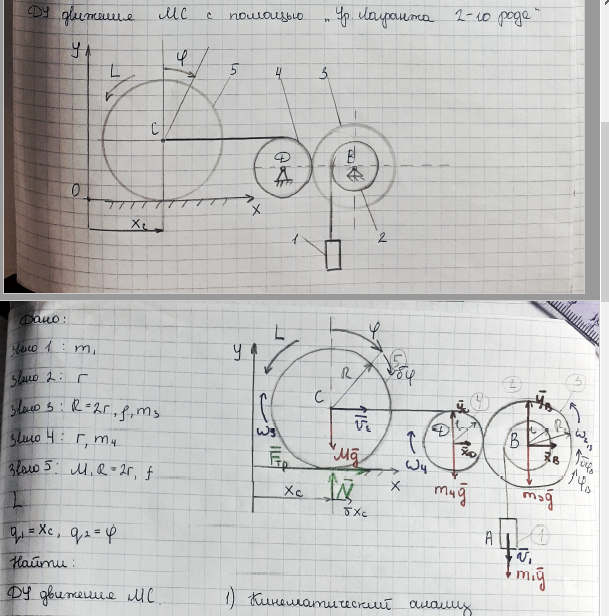 ДУ движение МС с помощью „Ур. Лагранжа 2-го рода"
y
L
φ
5
4
3
C
D
B
O
x
xc
1
2
Дано:
Звено 1: m₁
Звено 2: r
Звено 3: R=2r, ρ, m₃
Звено 4: r, m₄
Звено 5: M, R=2r, f
L
q₁=xc, q₂=φ
Найти:
ДУ движение МС.
1) Кинематический анализ
y
L
φ
5
δφ
R
C
V̄c
ω₅
F̄тр
Mḡ
N̄
xc
δxc
x
4
D
r
x̄D
ω₄
m₄ḡ
ȳB
3
B
R
x̄B
m₃ḡ
A
1
V̄₁
m₁ḡ